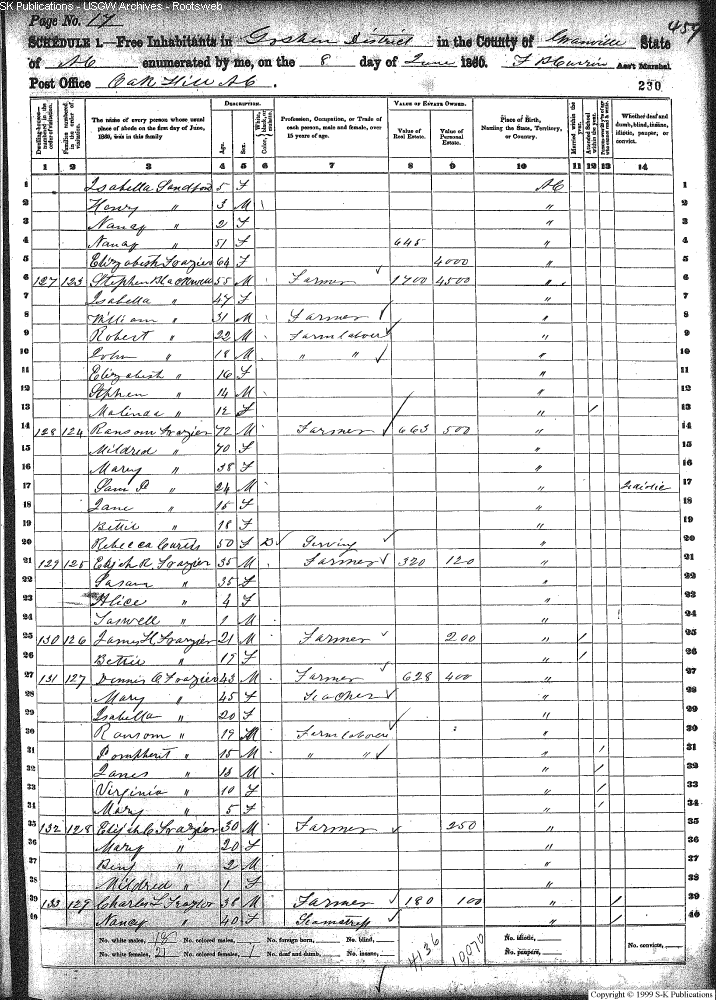 SK Publications - USGW Archives - Rootsweb
Page No. 17
457
SCHEDULE 1.—Free Inhabitants in Goshen District in the County of Granville State
of NC enumerated by me, on the 8 day of June 1860. Ass't Marshal.
Post Office Oak Hill NC.
230
Dwelling-houses—numbered in the order of visitation. Families numbered in the order of visitation. The name of every person whose usual place of abode on the first day of June, 1860, was in this family. DESCRIPTION. Age. Sex. Color, White, black, or mulatto. Profession, Occupation, or Trade of each person, male and female, over 15 years of age. VALUE OF ESTATE OWNED. Value of Real Estate. Value of Personal Estate. Place of Birth, Naming the State, Territory, or Country. Married within the year. Attended School within the year. Whether deaf and dumb, blind, insane, idiotic, pauper, or convict.
1 2 3 4 5 6 7 8 9 10 11 12 13 14
1 Isabella Sandford 5 F NC 1
2 Henry " 3 M " 2
3 Nancy " 2 F " 3
4 Nancy " 51 F 645 " 4
5 Elizabeth Frazier 64 F 4000 " 5
6 127 123 Stephen Blackwell 55 M Farmer 1700 4500 " 6
7 Isabella " 47 F " 7
8 William " 31 M Farmer " 8
9 Robert " 22 M Farm laborer " 9
10 John " 18 M " " " 10
11 Elizabeth " 16 F " 11
12 Stphen " 14 M " 12
13 Malinda " 12 F " / 13
14 128 124 Ransom Frazier 72 M Farmer 663 500 " 14
15 Mildred " 70 F " 15
16 Mary " 38 F " 16
17 Sam P " 24 M " Idiotic 17
18 Jane " 15 F " 18
19 Bettie " 18 F " 19
20 Rebecca Curtis 50 F B Serving " 20
21 129 125 Elijah R. Frazier 35 M Farmer 320 120 " 21
22 Susan " 35 F " 22
23 Alice " 4 F " 23
24 Taswell " 1 M " 24
25 130 126 James H. Frazier 21 M Farmer 200 " / 25
26 Bettie " 17 F " / 26
27 131 127 Dennis C Frazier 43 M Farmer 628 400 " 27
28 Mary " 45 F Teacher " 28
29 Isabella " 20 F " 29
30 Ransom " 19 M Farm laborer " 30
31 " 15 M " " " / 31
32 " 13 M " / 32
33 Virginia " 10 F " / 33
34 Mary " 5 F " / 34
35 132 128 Elijah C Frazier 30 M Farmer 250 " 35
36 Mary " 20 F " 36
37 Benj " 2 M " 37
38 Mildred " 1 F " 38
39 133 129 Charles L 38 M Farmer 180 100 " / 39
40 Nancy " 40 F Seamstress " / 40
No. white males, 18 No. colored males, No. foreign born, No. blind, No. idiotic,
No. white females, 21 No. colored females, 1 No. deaf and dumb, No. insane, No. paupers, No. convicts,
4136 10070
Copyright © 1999 S-K Publications